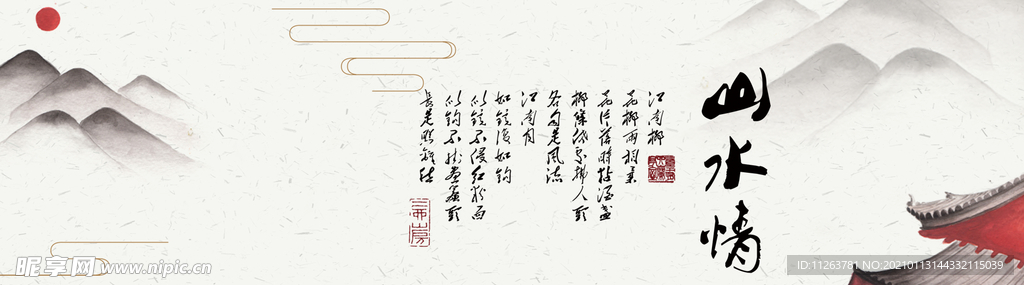 山水情
江南柳
花柳两相柔
花片落时黏酒盏
柳条低处拂人头
各自是风流
江南月
如镜复如钩
似镜不侵红粉面
似钩不挂画帘头
長是照離愁
昵享网 www.nipic.cn
ID:11263781 NO:20210113144332115039